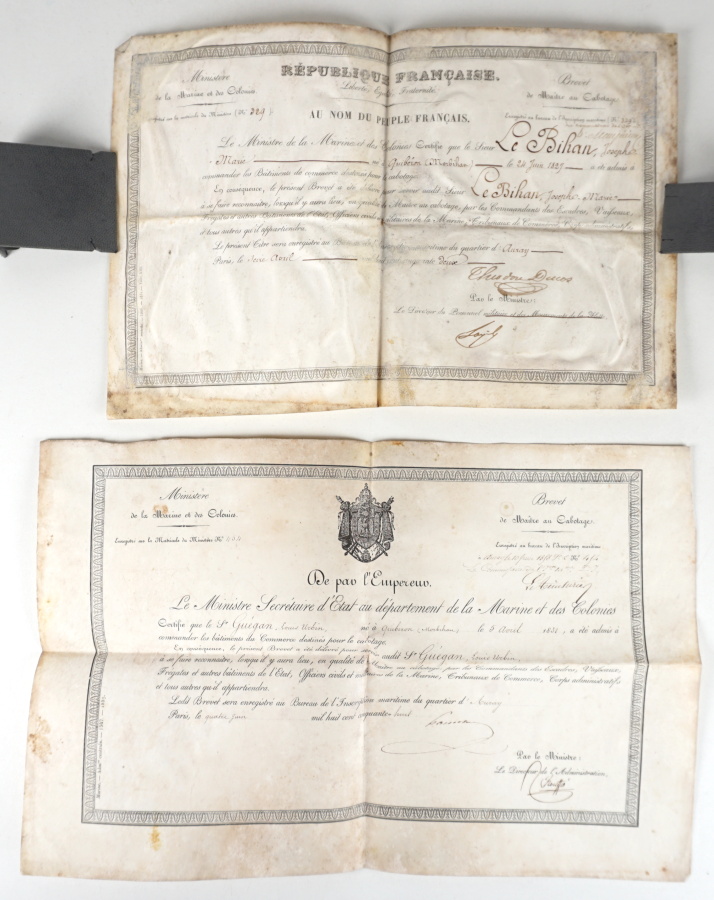 Ministère
de la Marine et des Colonies.
RÉPUBLIQUE FRANÇAISE.
Liberté, Égalité, Fraternité.
Brevet
de Maître au Cabotage.
AU NOM DU PEUPLE FRANÇAIS.
Le Ministre de la Marine et des Colonies Certifie que le Sieur Le Bihan, Joseph
Marie né à Quiberon (Morbihan) le 24 Juin 1827 a été admis à
commander les Bâtiments de commerce destinés pour le cabotage.
En conséquence, le présent Brevet a été délivré pour servir audit Sieur Le Bihan, Joseph Marie
à se faire reconnaître, lorsqu'il y aura lieu, en qualité de Maître au cabotage, par les Commandants des Escadres, Vaisseaux,
Frégates et autres Bâtiments de l'État, Officiers civils et militaires de la Marine, Tribunaux de Commerce, Corps administratifs
et tous autres qu'il appartiendra.
Le présent Titre sera enregistré au Bureau de l'Inscription maritime du quartier d'Auray
Paris, le Seize Avril cinquante deux
Théodore Ducos
Par le Ministre:
Le Directeur du Personnel
Ministère
de la Marine et des Colonies.
Enregistré sur la Matricule du Ministère N° 404
Brevet
de Maître au Cabotage.
Enregistré au bureau de l'Inscription maritime
De par l'Empereur.
Le Ministre Secrétaire d'État au département de la Marine et des Colonies
Certifie que le Sr Guégan, Louis Urbin, né à Quiberon (Morbihan) le 5 Avril 1831, a été admis à
commander les bâtiments du Commerce destinés pour le cabotage.
En conséquence, le présent Brevet a été délivré pour servir audit Sr Guégan, Louis Urbin,
à se faire reconnaître, lorsqu'il y aura lieu, en qualité de Maître au cabotage, par les Commandants des Escadres, Vaisseaux,
Frégates et autres bâtiments de l'État, Officiers civils et militaires de la Marine, Tribunaux de Commerce, Corps administratifs
et tous autres qu'il appartiendra.
Ledit Brevet sera enregistré au Bureau de l'Inscription maritime du quartier d'Auray
Paris, le quatre juin mil huit cent cinquante huit
Par le Ministre:
Le Directeur de l'Administration,